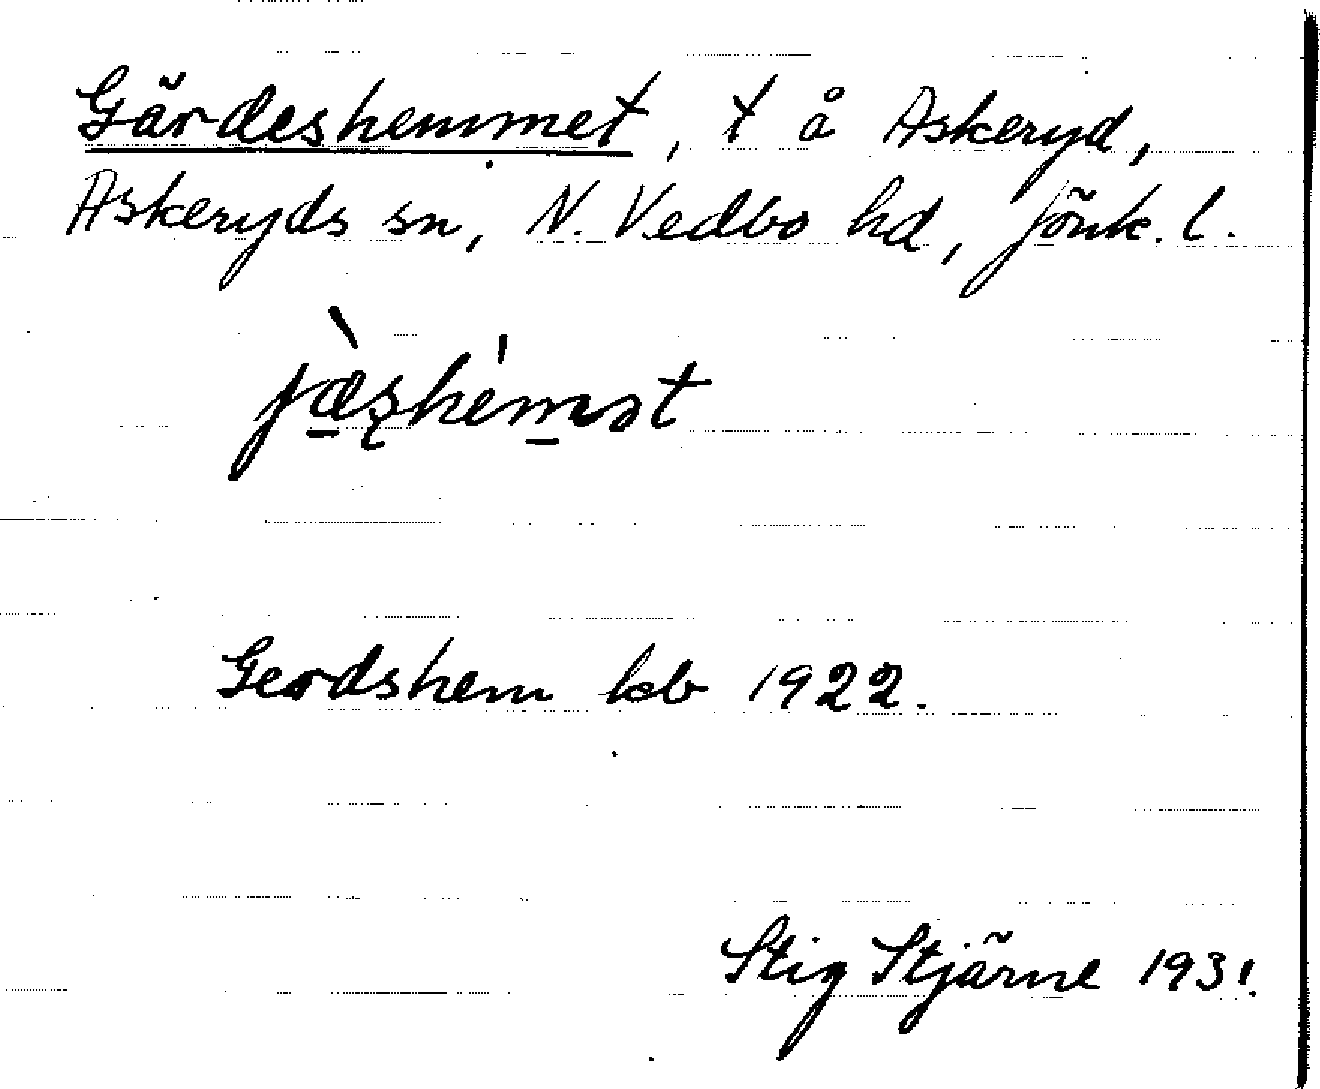 Gärdeshemmet, t å Askeryd,
Askeryds sn, N. Vedbo hd, Jönk. l.
Gerdshem ksb 1922.
Stig Stjärne 1931.